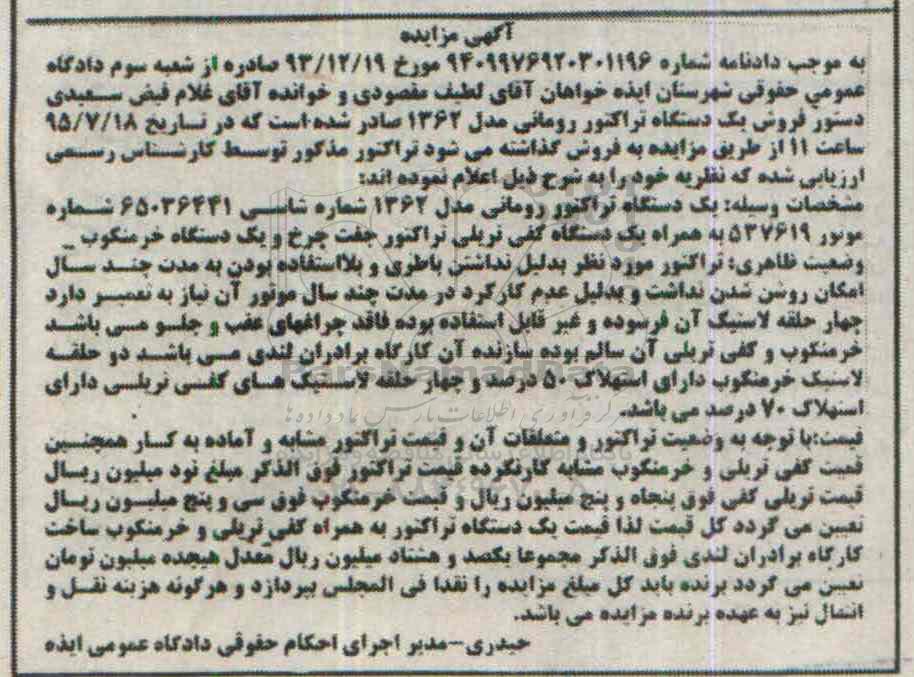 آگهی مزایده
به موجب دادنامه شماره ۹۴۰۹۹۷۶۹۲۰۳۰۱۱۹۶ مورخ ۹۳/۱۲/۱۹ صادره از شعبه سوم دادگاه
عمومی حقوقی شهرستان ایذه خواهان آقای لطیف مقصودی و خوانده آقای غلام فیض سعیدی
دستور فروش یک دستگاه تراکتور رومانی مدل ۱۳۶۲ صادر شده است که در تاریخ ۹۵/۷/۱۸
ساعت ۱۱ از طریق مزایده به فروش گذاشته می شود تراکتور مذکور توسط کارشناس رسمی
ارزیابی شده که نظریه خود را به شرح ذیل اعلام نموده اند:
مشخصات وسیله: یک دستگاه تراکتور رومانی مدل ۱۳۶۲ شماره شاسی ۶۵۰۳۶۴۴۱ شماره
موتور ۵۳۷۶۱۹ به همراه یک دستگاه کفی تریلی تراکتور جفت چرخ و یک دستگاه خرمنکوب _
وضعیت ظاهری: تراکتور مورد نظر بدلیل نداشتن باطری و بلااستفاده بودن به مدت چند سال
امکان روشن شدن نداشت و بدلیل عدم کارکرد در مدت چند سال موتور آن نیاز به تعمیر دارد
چهار حلقه لاستیک آن فرسوده و غیر قابل استفاده بوده فاقد چراغهای عقب و جلو می باشد
خرمنکوب و کفی تریلی آن سالم بوده سازنده آن کارگاه برادران لندی می باشد دو حلقه
لاستیک خرمنکوب دارای استهلاک ۵۰ درصد و چهار حلقه لاستیک های کفی تریلی دارای
استهلاک ۷۰ درصد می باشد.
قیمت: با توجه به وضعیت تراکتور و متعلقات آن و قیمت تراکتور مشابه و آماده به کار همچنین
قمیت کفی تریلی و خرمنکوب مشابه کارنکرده قیمت تراکتور فوق الذکر مبلغ نود میلیون ریال
قیمت تریلی کفی فوق پنجاه و پنج میلیون ریال و قیمت خرمنکوب فوق سی و پنج میلیون ریال
تعیین می گردد کل قیمت لذا قیمت یک دستگاه تراکتور به همراه کفی تریلی و خرمنکوب ساخت
کارگاه برادران لندی فوق الذکر مجموعا یکصد و هشتاد میلیون ریال معدل هیجده میلیون تومان
تعیین می گردد برنده باید کل مبلغ مزایده را نقدا فی المجلس بپردازد و هرگونه هزینه نقل و
انتقال نیز به عهده برنده مزایده می باشد.
حیدری-مدیر اجرای احکام حقوقی دادگاه عمومی ایذه
ParsNamadData